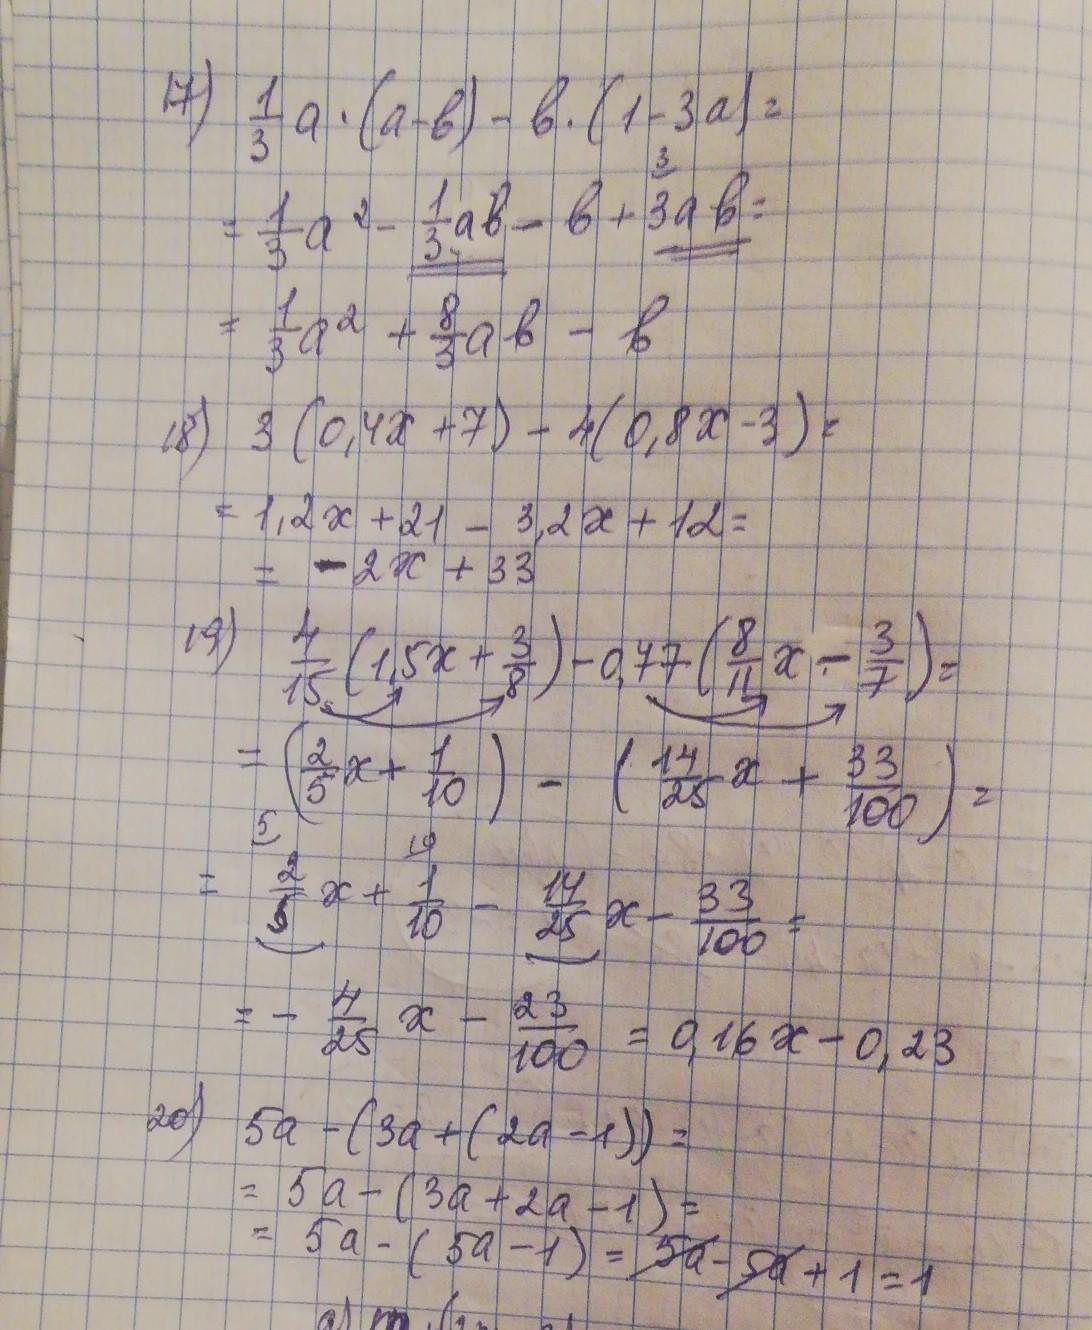 17) 1/3 a · (a - в) - в · (1 - 3a) =
= 1/3 a² - 1/3 aв - в + 3aв =
= 1/3 a² + 8/3 aв - в
18) 3 (0,4x + 7) - 4(0,8x - 3) =
= 1,2x + 21 - 3,2x + 12 =
= - 2x + 33
19) 4/15 (1,5x + 3/8) - 0,77 (8/11 x - 3/7) =
= (2/5 x + 1/10) - (14/25 x + 33/100) =
= 2/5 x + 1/10 - 14/25 x - 33/100 =
= - 4/25 x - 23/100 = 0,16x - 0,23
20) 5a - (3a + (2a - 1)) =
= 5a - (3a + 2a - 1) =
= 5a - (5a - 1) = 5a - 5a + 1 = 1